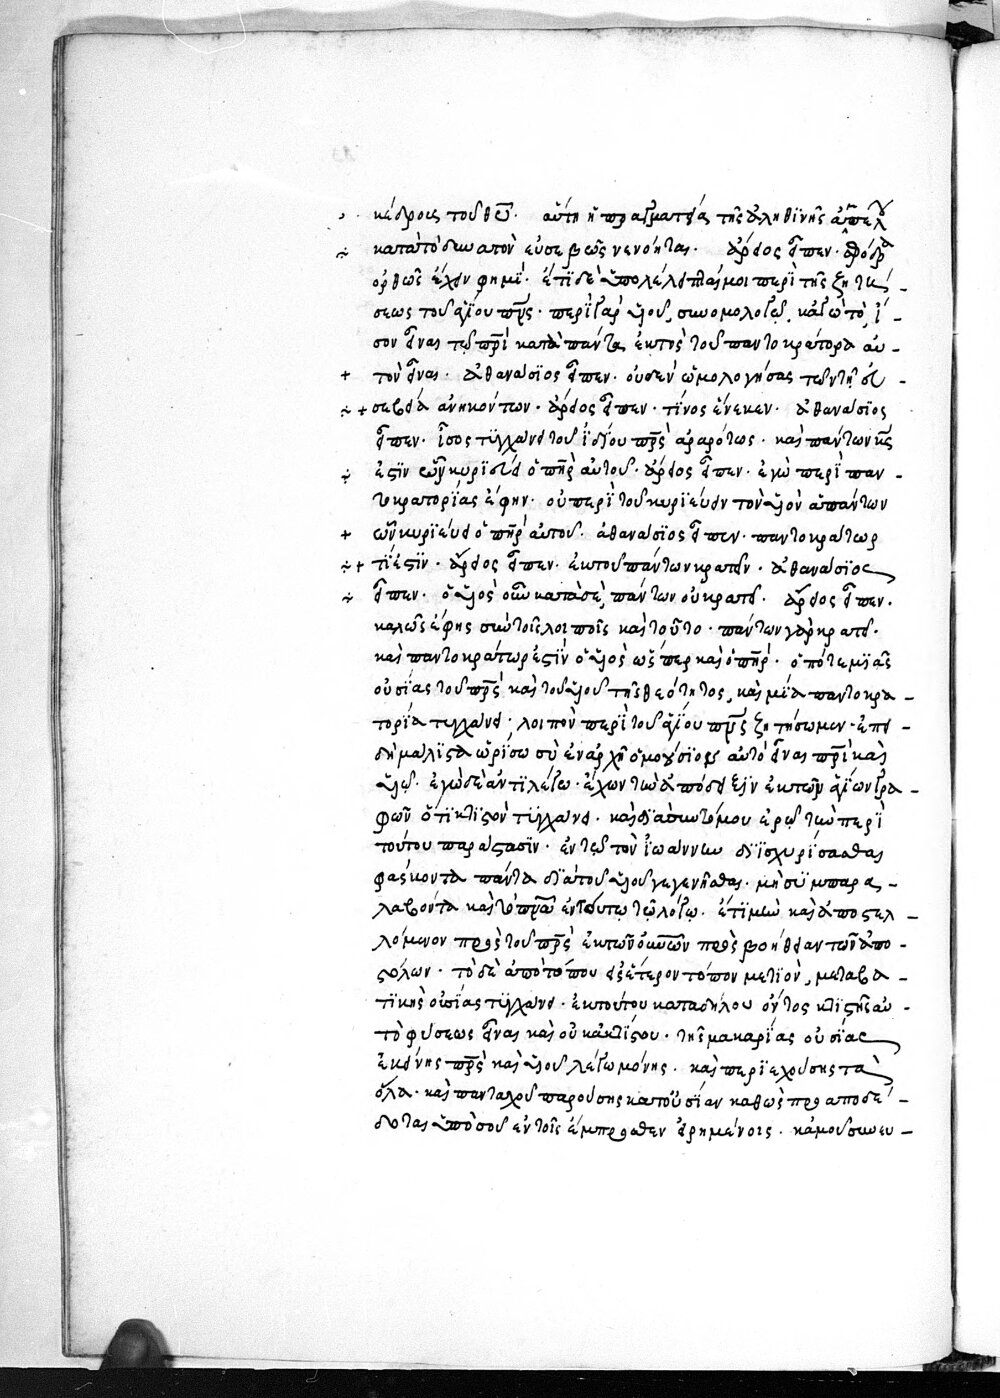 κέδροις τοῦ θῦ. αὕτη ἡ πραγματεία τῆς ἀληθινῆς ἀμπέλου
κατὰ τὸ δυνατὸν εὐσεβῶς νενόηται. ἄρειος εἶπεν.
ὀρθῶς ἔχειν φημί. ἔτι δὲ ὑπολέλειπταί μοι περὶ τῆς ζητή-
σεως τοῦ ἁγίου πνς. περὶ γὰρ υἱοῦ, συνομολογῶ, κἀγὼ τὸ, ἴ-
σον εἶναι τῷ πρὶ κατὰ πάντα ἐκτὸς τοῦ παντοκράτορα αὐ-
+ τὸν εἶναι. ἀθανάσιος εἶπεν. οὐδὲν ὡμολόγησας τῶν τῇ εὐ-
+ σεβεία ἀνηκόντων. ἄρειος εἶπεν. τίνος ἕνεκεν. ἀθανάσιος
εἶπεν. ἴσος τυγχάνει τοῦ ἰδίου πρς ἀραρότως. καὶ πάντων κς
ἐστιν ὧν κυριεύει ὁ πηρ αὐτοῦ. ἄρειος εἶπεν. ἐγὼ περὶ παν
τοκρατορίας ἔφην. οὐ περὶ τοῦ κυριεύειν τὸν υἱὸν ἁπάντων
+ ὧν κυριεύει ὁ πηρ αὐτοῦ. ἀθανάσιος εἶπεν. παντοκράτωρ
+ τί ἐστιν. ἄρειος εἶπεν. ἐκ τοῦ πάντων κρατεῖν. ἀθανάσιος
εἶπεν. ὁ υἱὸς οὖν κατὰ σὲ, πάντων οὐ κρατεῖ. ἄρειος εἶπεν.
καλῶς ἔφης σὺν τοῖς λοιποῖς καὶ τοῦτο. πάντων γὰρ κρατεῖ.
καὶ παντοκράτωρ ἐστὶν ὁ υἱὸς ὥσπερ καὶ ὁ πηρ. ὁπότε μιᾶς
οὐσίας τοῦ πρς καὶ τοῦ υἱοῦ τῆς θεότητος, καὶ μία παντοκρα-
τορία τυγχάνει. λοιπὸν περὶ τοῦ ἁγίου πνς ζητήσωμεν. ἐπει
δὴ μάλιστα ὥρισω σὺ ἐν ἀρχῇ ὁμοούσιον αὐτὸ εἶναι πρὶ καὶ
υἱῷ. ἐγὼ δὲ ἀντιλέγω. ἔχων τὴν ἀπόδειξιν ἐκ τῶν ἁγίων γρα-
φῶν ὅτι κτιστὸν τυγχάνει. καὶ διὰ συντόμου ἐρῶ τὴν περὶ
τούτου παράστασιν. ἐν τῷ τὸν ἰωάννην διϊσχυρίσασθαι
φάσκοντα πάντα διὰ τοῦ υἱοῦ γεγενῆσθαι. μὴ συμπαρα-
λαβόντα καὶ τὸ πνα ἐν τούτω τῶ λόγω. ἔτι μὴν καὶ ἀποστελ-
λόμενον πρὸς τοῦ πρς ἐκ τῶν οὐνῶν πρὸς βοήθειαν τῶν ἀπο-
στόλων. τὸ δὲ ἀπὸ τόπου εἰς ἕτερον τόπον μετιὸν, μεταβα-
τικῆς οὐσίας τυγχάνει. ἐκ τούτου καταδήλου ὄντος κτιστῆς αὐ-
τὸ φύσεως εἶναι καὶ οὐκ ἀκτίστου. τῆς μακαρίας οὐσίας
ἐκείνης πρς καὶ υἱοῦ λέγω μόνης. καὶ περιεχούσης τὰ
ὅλα. καὶ πανταχοῦ παρούσης κατ' οὐσίαν καθὼς προαποδέ-
δοται ὑπὸ σοῦ ἐν τοῖς ἔμπροσθεν εἰρημένοις. κἀμοῦ συνευ-